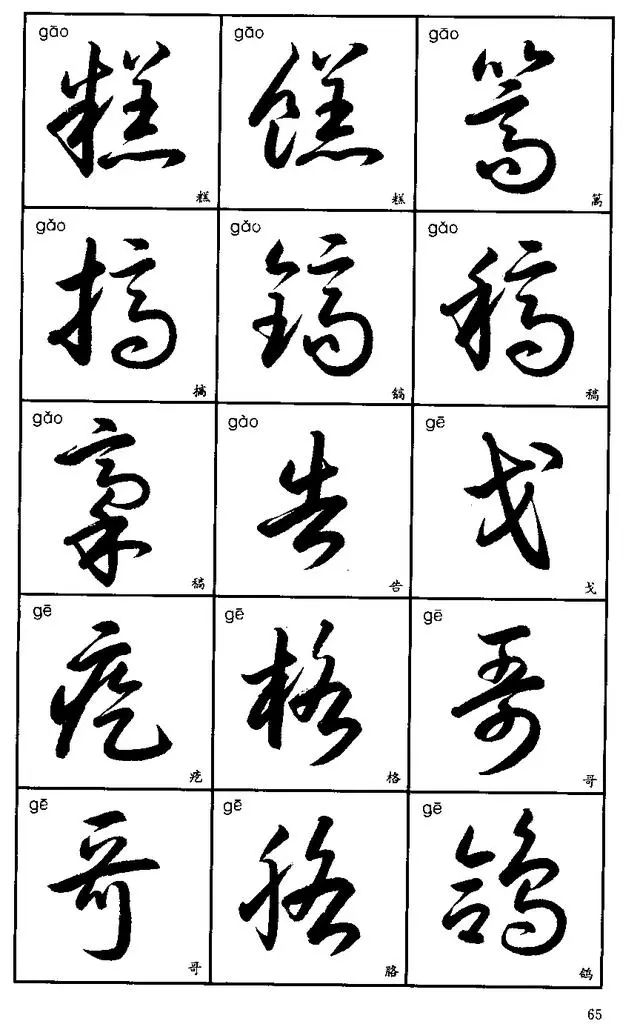 gāo gāo gāo
糕 餻 篙
糕 糕 篙
gǎo gǎo gǎo
搞 鎬 稿
搞 镐 稿
gǎo gào gē
稾 告 戈
稿 告 戈
gē gē gē
疙 格 哥
疙 格 哥
gē gē gē
哥 胳 鴿
哥 胳 鸽
65